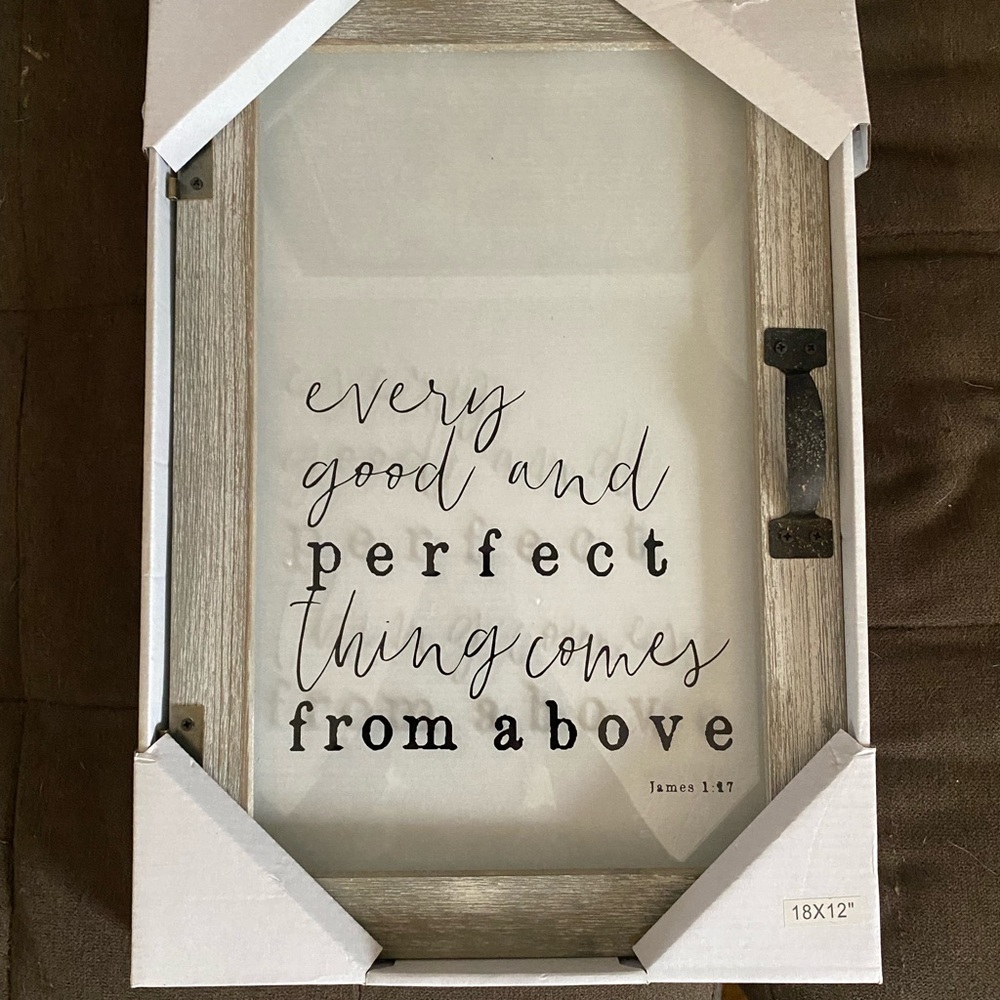 every
good and
perfect
thing comes
from above
James 1:17
18X12"